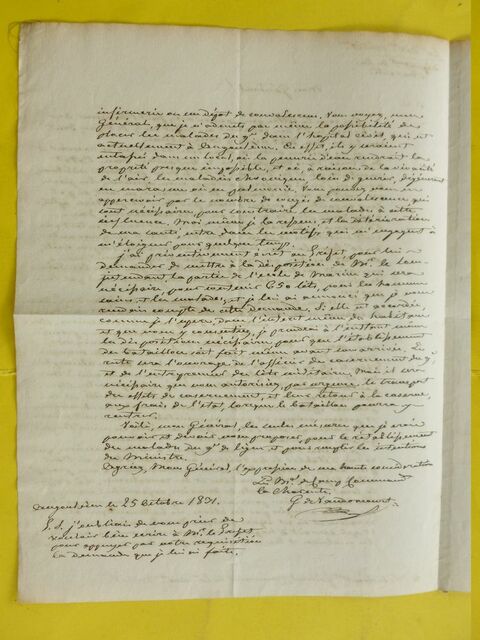 infirmerie ou en dépôt de convalescence. Vous voyez, mon
Général, que je n'admets pas même la possibilité de
placer les malades du 9e dans l'hôpital civil, qui est
actuellement à Angoulême. En effet, ils y seraient
entassés dans un local, où la pénurie d'eau rendrait la
propreté presque impossible, et où, à raison de la vivacité
de l'air les malades chroniques, loin de guérir,
en marasme ou en pulmonie. Vous pouvez vous en
appercevoir par le nombre de congés de convalescence qui
sont nécessaires, pour soustraire les malades à cette
influence. Moi même je la ressens, et la détérioration
de ma santé, entre dans les motifs, qui m'engagent à
m'éloigner pour quelque temps.
J'ai présentement écrit au Préfet, pour lui
demander de mettre à la disposition de Mr. le
la partie de l'école de Marine qui sera
nécessaire, pour contenir 650 lits, pour les hommes
sains, et les malades, et je lui ai annoncé que je vous
rendais compte de cette demande. Si elle est accordée
comme je l'espère, dans l'intérêt même des habitans
et que vous y consentiez, je prendrai à l'instant même
les dispositions nécessaires, pour que l'établissement
du bataillon soit fait même avant son arrivée. Le
reste sera l'ouvrage de l'officier de casernement du 9e
et de l'entrepreneur des lits militaires. Mais il sera
nécessaire que vous autorisiez, par urgence, le transport
des effets de casernement, et leur retour à la caserne,
aux frais de l'état, lorsque le bataillon pourra y
rentrer.
Voilà, mon Général, les seules mesures que je crois
pouvoir et devoir vous proposer, pour le rétablissement
des malades du 9e de ligne et pour remplir les intentions
du Ministre.
Agréez, Mon Général, l'expression de ma haute considération
Le Mal. de Camp Commandt.
la Charente,
G de Vaudoncourt
Angoulême le 25 Octobre 1831.
P.S. j'oubliais de vous prier de
vouloir bien écrire à Mr. le Préfet
pour appuyer par votre réquisition
la demande que je lui ai faite.